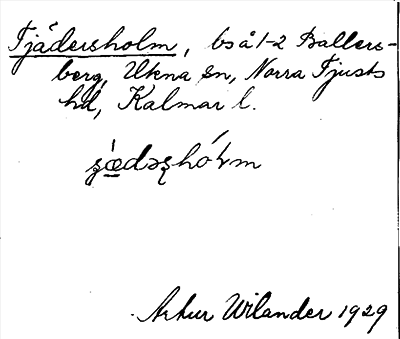 Tjädersholm, bs å 1-2 Ballers-
berg, Ukna sn, Norra Tjusts
hd, Kalmar l.
Arthur Wilander 1929